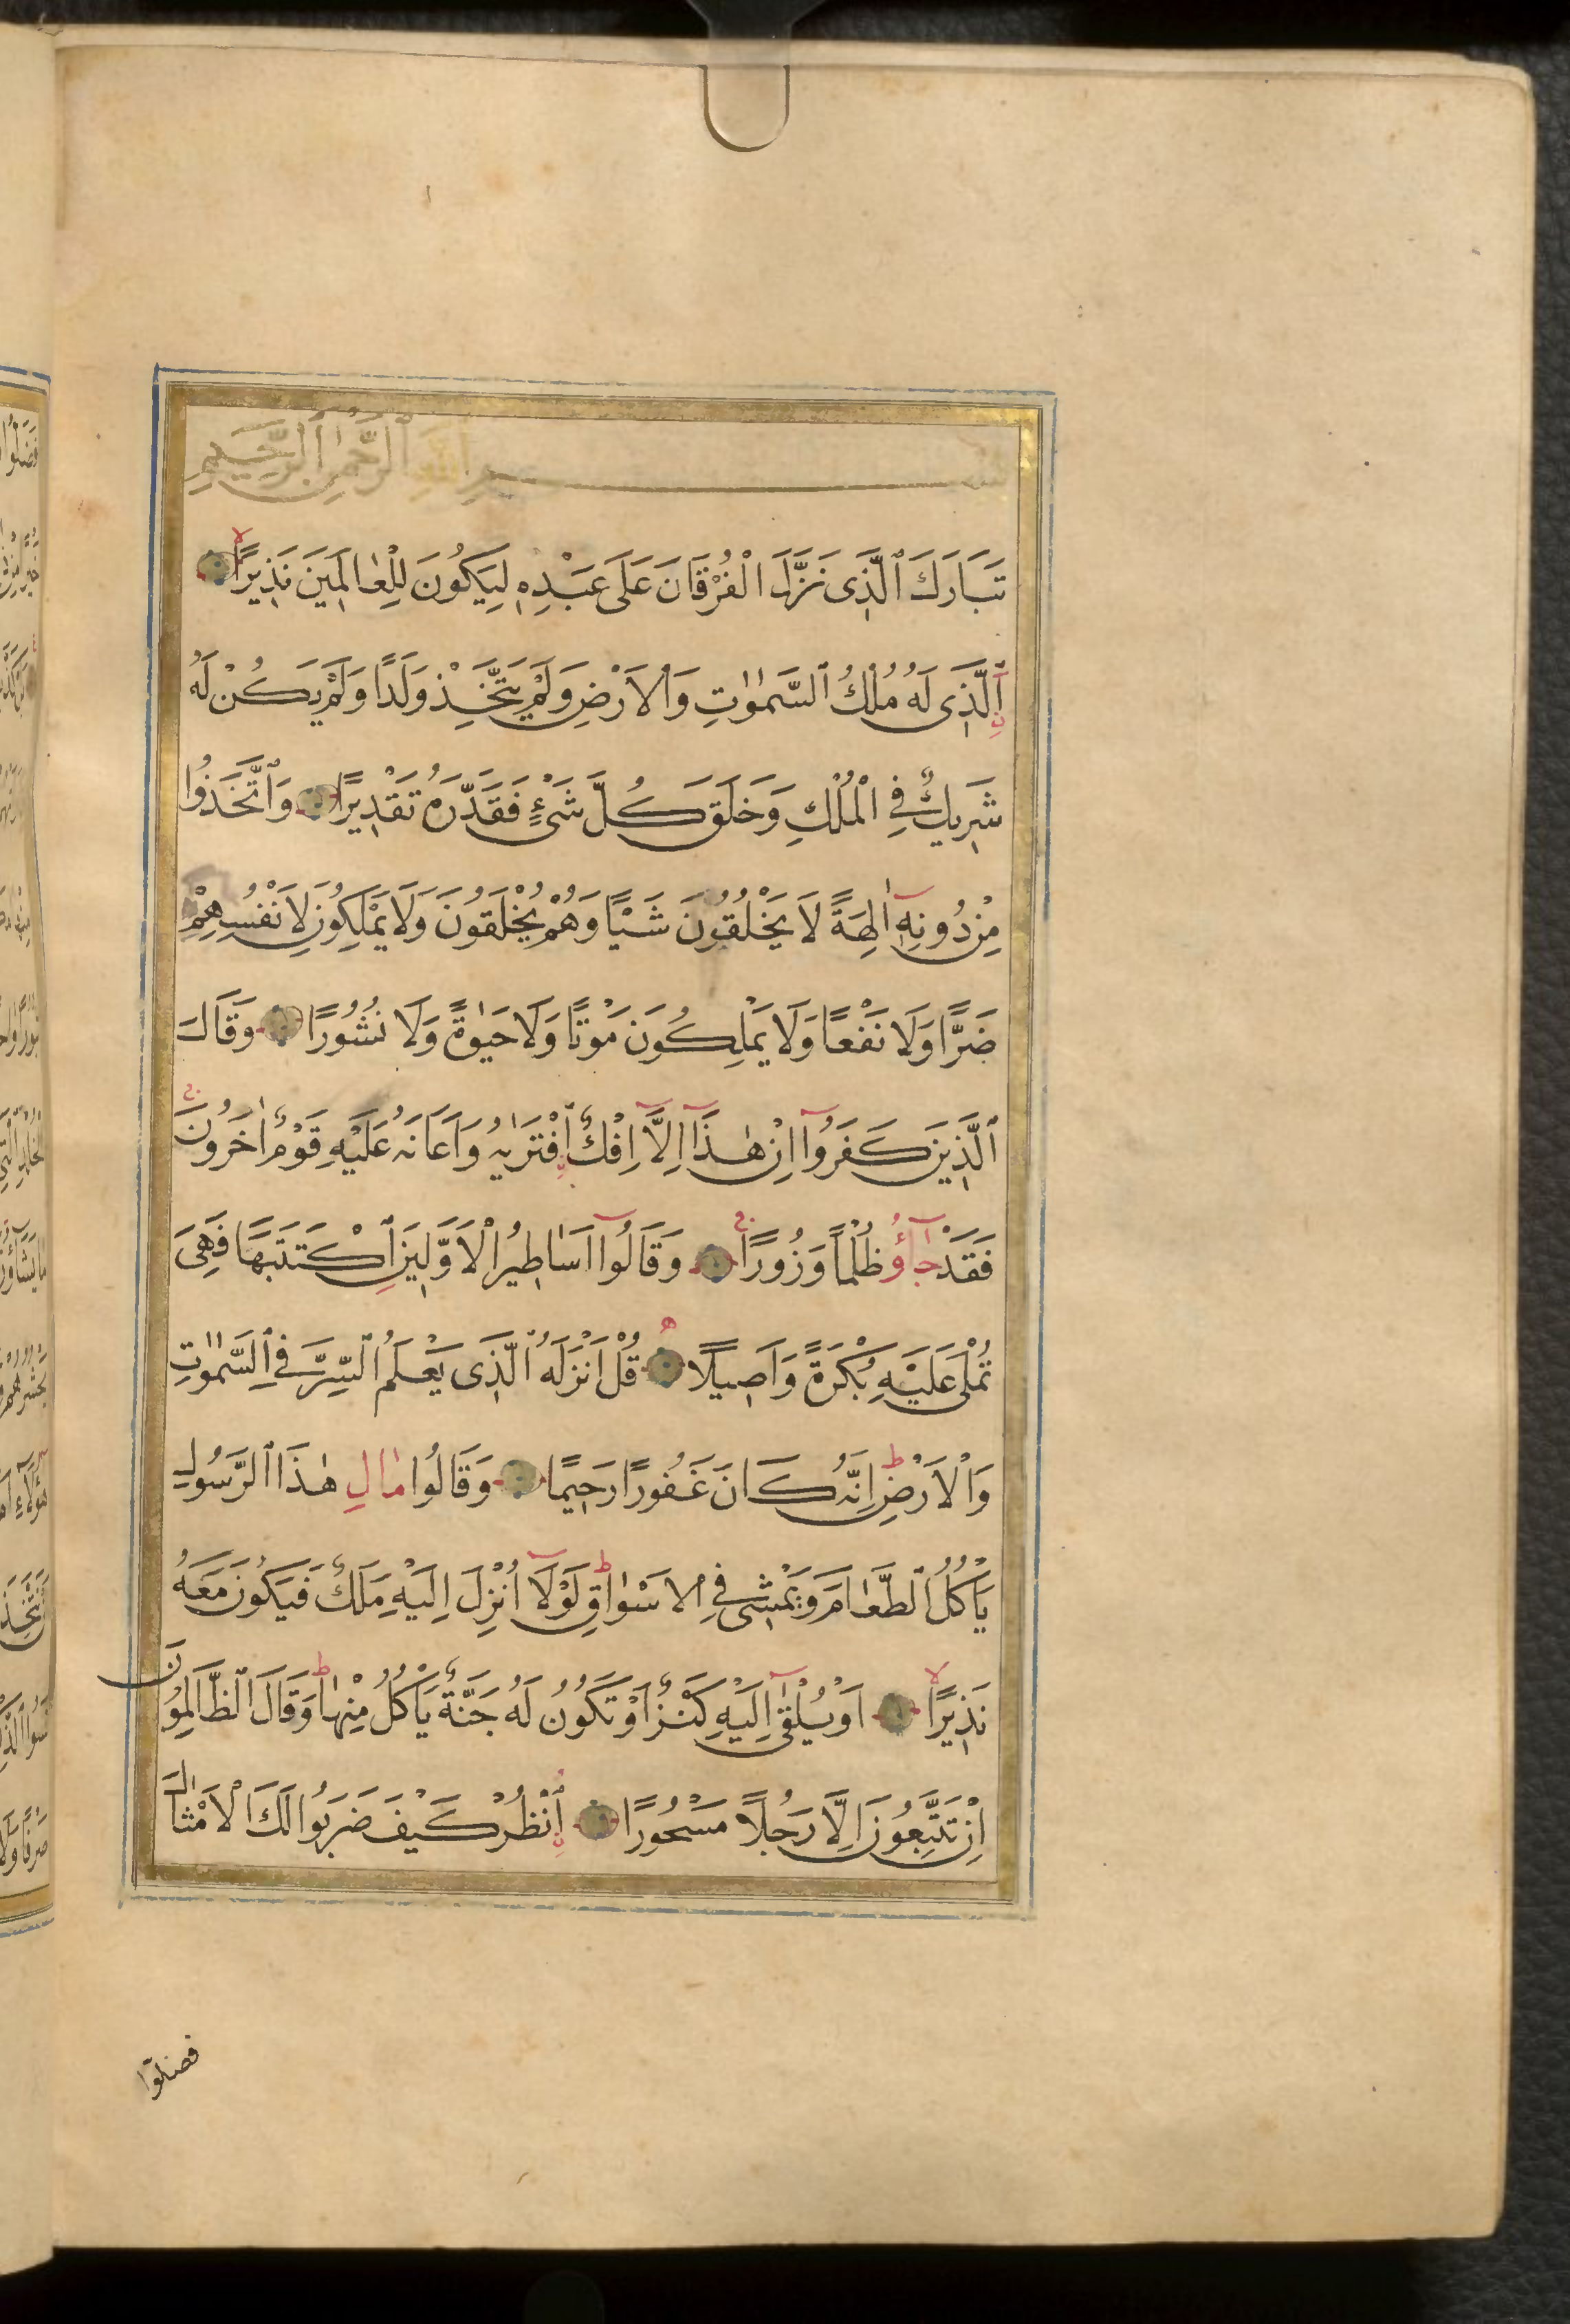 بسم الله الرحمن الرحيم
تَبَارَكَ ٱلَّذِى نَزَّلَ الْفُرْقَانَ عَلَى عَبْدِهٖ لِيَكُونَ لِلْعٰالَمِينَ نَذِيرًا
ٱلَّذِى لَهُ مُلْكُ ٱلسَّمٰوٰاتِ وَالْاَرْضِ وَلَمْ يَتَّخِذْ وَلَدًا وَلَمْ يَكُنْ لَهُ
شَرِيكٌ فِي الْمُلْكِ وَخَلَقَ كُلَّ شَىْءٍ فَقَدَّرَهُ تَقْدِيرًا وَاتَّخَذُوا
مِنْ دُونِهٖٓ اٰلِهَةً لَا يَخْلُقُونَ شَيْـًٔا وَهُمْ يُخْلَقُونَ وَلَا يَمْلِكُونَ لِاَنْفُسِهِمْ
ضَرًّا وَلَا نَفْعًا وَلَا يَمْلِكُونَ مَوْتًا وَلَا حَيٰوةً وَلَا نُشُورًا وَقَالَ
ٱلَّذِينَ كَفَرُوٓا اِنْ هٰذَٓا اِلَّٓا اِفْكٌ ٱفْتَرٰيهُ وَاَعَانَهُ عَلَيْهِ قَوْمٌ اٰخَرُونَ
فَقَدْ جَآؤُ ظُلْمًا وَزُورًا وَقَالُوٓا اَسَاطِيرُ الْاَوَّلِينَ ٱكْتَتَبَهَا فَهِىَ
تُمْلٰى عَلَيْهِ بُكْرَةً وَاَصِيلًا قُلْ اَنْزَلَهُ ٱلَّذِى يَعْلَمُ ٱلسِّرَّ فِي ٱلسَّمٰوٰتِ
وَالْاَرْضِ اِنَّهُ كَانَ غَفُورًا رَحِيمًا وَقَالُوا مٰالِ هٰذَا ٱلرَّسُولِ
يَأْكُلُ ٱلطَّعٰامَ وَيَمْشِى فِي الْاَسْوٰاقِ لَوْلَٓا اُنْزِلَ اِلَيْهِ مَلَكٌ فَيَكُونَ مَعَهُ
نَذِيرًا اَوْ يُلْقٰىٓ اِلَيْهِ كَنْزٌ اَوْ تَكُونُ لَهُ جَنَّةٌ يَأْكُلُ مِنْهٰا وَقَالَ ٱلظَّالِمُونَ
اِنْ تَتَّبِعُونَ اِلَّا رَجُلًا مَسْحُورًا اُنْظُرْ كَيْفَ ضَرَبُوا لَكَ الْاَمْثٰالَ
فضلوا